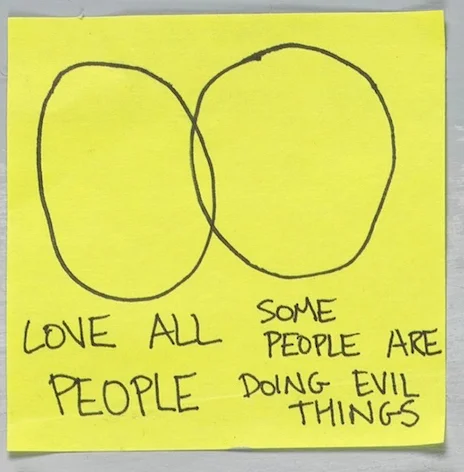 LOVE ALL
PEOPLE
SOME
PEOPLE ARE
DOING EVIL
THINGS